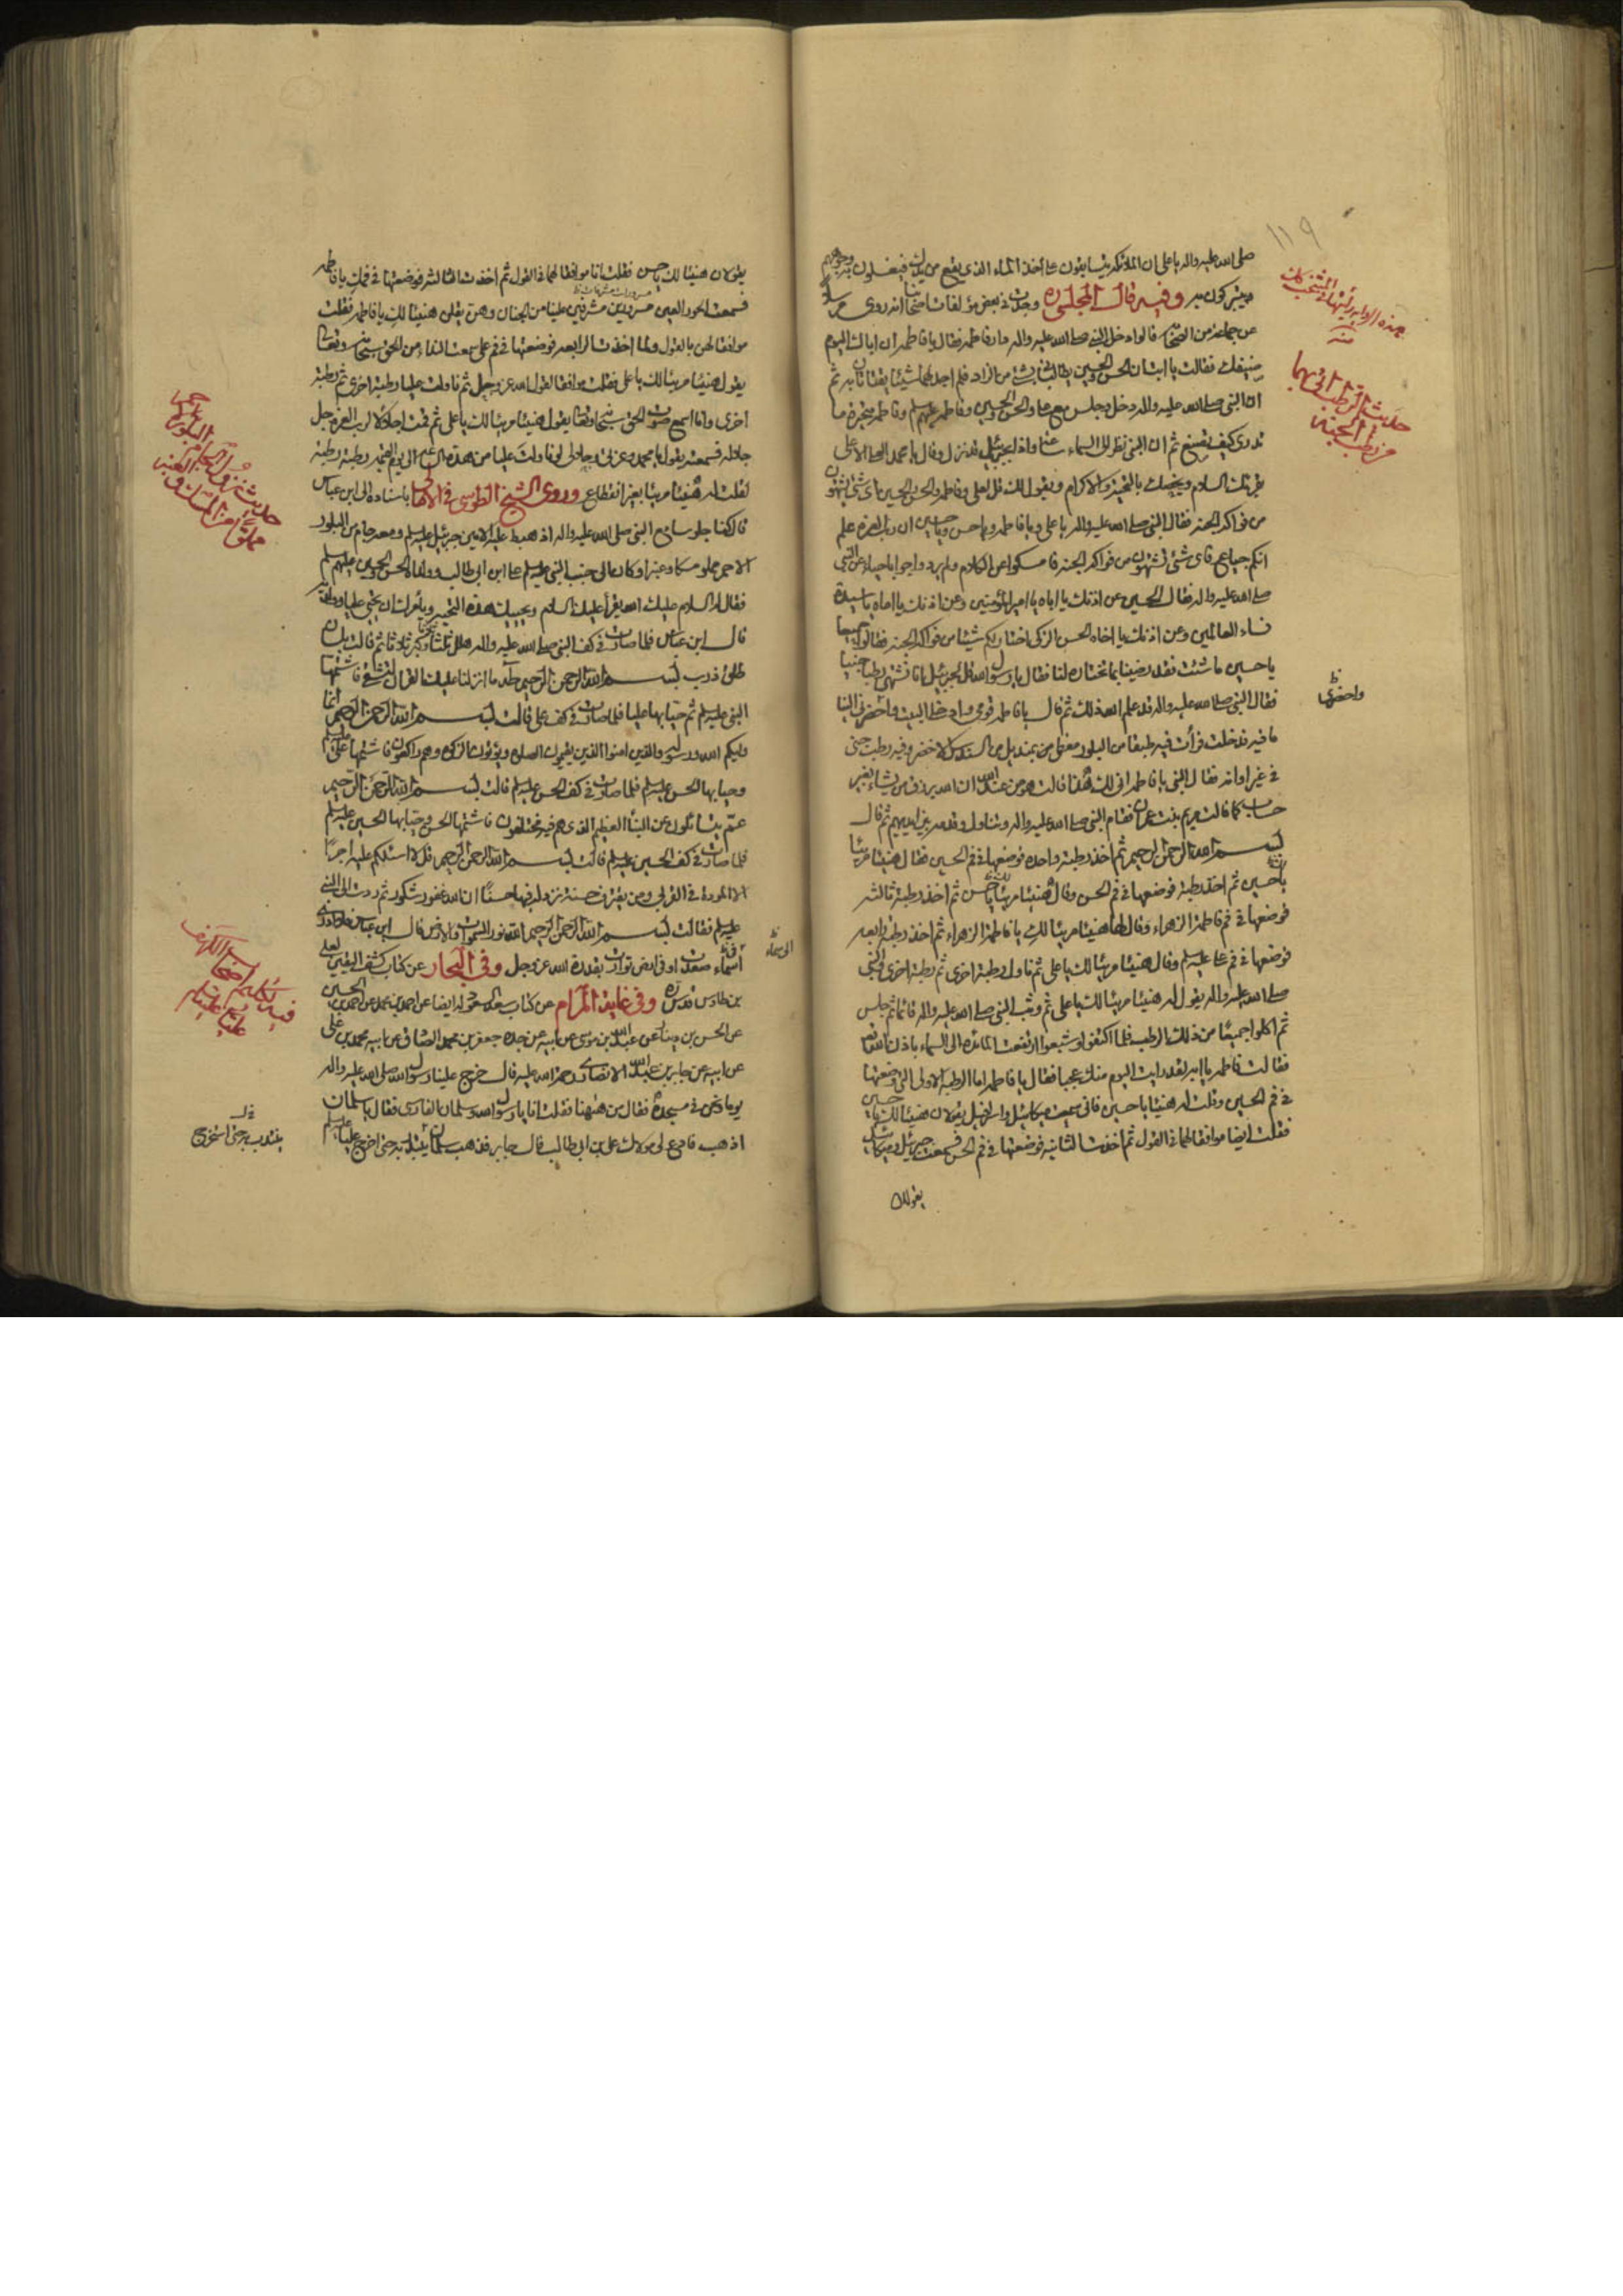 ١١٩
صلى الله عليه واله يا على ان الملائكة يتسابقون على أخذ الماء الذى يقع من يدك فيغسلون به وجوههم
ويتبركون به وفيه قال المجلسى ره وجدت فى بعض مؤلفات اصحابنا انه روى مرسلا
عن جماعة من الصحابة قالوا دخل النبى صلى الله عليه واله دار فاطمة فقال يا فاطمة ان اباك اليوم
ضيفك فقالت يا ابت ان الحسن والحسين يطالبانى بشئ من الزاد فلم اجد لهما شيئا يقتاتان به ثم
ان النبى صلى الله عليه واله دخل وجلس مع على والحسن والحسين وفاطمة عليهم السلم وفاطمة متحيرة ما
تدرى كيف تصنع ثم ان النبى نظر الى السماء ساعة واذا بجبرئيل قد نزل وقال يا محمد العلى الاعلى
يقرئك السلام ويخصك بالتحية والاكرام ويقول لك قل لعلى وفاطمة والحسن والحسين اى شئ يشتهون
من فواكه الجنة فقال النبى صلى الله عليه واله يا على ويا فاطمة ويا حسن ويا حسين ان رب العزة علم
انكم جياع فاى شئ تشتهون من فواكه الجنة فامسكوا عن الكلام ولم يردوا جوابا حياء عن النبى
صلى الله عليه واله فقال الحسين عن اذنك يا اباه يا امير المؤمنين وعن اذنك يا اماه يا سيدة
نساء العالمين وعن اذنك يا اخاه الحسن الزكى اختار لكم شيئا من فواكه الجنة فقالوا جميعا
يا حسين ما شئت فقد رضينا بما تختاره لنا فقال يا رسول الله قل لجبرئيل انا نشتهى رطبا جنيا
فقال النبى صلى الله عليه واله قد علم الله ذلك ثم قال يا فاطمة قومى وادخلى البيت واحضرى الينا
واحضرى
ما فيه فدخلت فرأت فيه طبقا من البلور مغطى بمنديل من السندس الاخضر وفيه رطب جنى
فى غير اوانه فقال النبى يا فاطمة انى لك هذا قالت هو من عند الله ان الله يرزق من يشاء بغير
حساب كما قالت مريم بنت عمران فقام النبى صلى الله عليه واله وتناوله وقدمه بين ايديهم ثم قال
بسم الله الرحمن الرحيم ثم اخذ رطبة واحدة فوضعها فى فم الحسين فقال هنيئا مريئا
يا حسين ثم اخذ رطبة فوضعها فى فم الحسن وقال هنيئا مريئا يا حسن ثم اخذ رطبة ثالثة
فوضعها فى فم فاطمة الزهراء وقال لها هنيئا مريئا لك يا فاطمة الزهراء ثم اخذ رطبة رابعة
فوضعها فى فم على عليه السلم وقال هنيئا مريئا لك يا على ثم ناول رطبة اخرى ثم رطبة اخرى والنبى
صلى الله عليه واله يقول له هنيئا مريئا لك يا على ثم وثب النبى صلى الله عليه واله قائما ثم جلس
ثم اكلوا جميعا من ذلك الرطب فلما اكتفوا وشبعوا ارتفعت المائدة الى السماء باذن الله تعالى
فقالت فاطمة يا ابه لقد رايت اليوم منك عجبا فقال يا فاطمة اما الرطبة الاولى التى وضعتها
فى فم الحسين وقلت له هنيئا يا حسين فانى سمعت ميكائيل واسرافيل يقولان هنيئا لك يا حسين
فقلت ايضا موافقا لهما فى القول ثم اخذت الثانية فوضعتها فى فم الحسن فسمعت جبرئيل وميكائيل
يقولان
حديث الرطب
من رطب الجنة
يقولان هنيئا لك يا حسن فقلت انا موافقا لهما فى القول ثم اخذت الثالثة فوضعتها فى فمك يا فاطمة
فسمعت الحور العين مسرورين مشرفين علينا من الجنان وهن يقلن هنيئا لك يا فاطمة فقلت
موافقا لهن بالقول ولما اخذت الرابعة فوضعتها فى فم على سمعت النداء من الحق سبحانه وتعالى
يقول هنيئا مريئا لك يا على فقلت موافقا لقول الله عز وجل ثم ناولت عليا رطبة اخرى ثم رطبة
اخرى وانا اسمع صوت الحق سبحانه وتعالى يقول هنيئا مريئا لك يا على ثم قمت اجلالا لرب العزة جل
جلاله فسمعته يقول يا محمد وعزتى وجلالى لو ناولت عليا من هذه الساعة الى يوم القيمة رطبة رطبة
لقلت له هنيئا مريئا بغير انقطاع وروى الشيخ الطوسى فى الامالى باسناده الى ابن عباس
قال كنا جلوسا مع النبى صلى الله عليه واله اذ هبط عليه الامين جبرئيل عليه السلم ومعه جام من البلور
الاحمر مملو مسكا وعنبرا وكان الى جنب النبى عليه السلم على ابن ابى طالب وولداه الحسن والحسين عليهم السلم
فقال له السلام عليك الله يقرأ عليك السلام ويحييك بهذه التحية ويأمرك ان تحيى عليا وولديه
قال ابن عباس فلما صارت فى كف النبى صلى الله عليه واله هلل ثلثا وكبر ثلاثا ثم قالت بلسان
طلق ذرب بسم الله الرحمن الرحيم طه ما انزلنا عليك القرآن لتشقى فاشتمها
النبى عليه السلم ثم حيا بها عليا فلما صارت فى كف على قالت بسم الله الرحمن الرحيم انما
وليكم الله ورسوله والذين امنوا الذين يقيمون الصلوة ويؤتون الزكوة وهم راكعون فاشتمها على عليه السلم
وحيا بها الحسن عليه السلم فلما صارت فى كف الحسن عليه السلم قالت بسم الله الرحمن الرحيم
عم يتسائلون عن النبأ العظيم الذى هم فيه مختلفون فاشتمها الحسن وحيا بها الحسين عليه السلم
فلما صارت فى كف الحسين عليه السلم قالت بسم الله الرحمن الرحيم قل لا اسئلكم عليه اجرا
الا المودة فى القربى ومن يقترف حسنة نزد له فيها حسنا ان الله غفور شكور ثم ردت الى النبى
عليه السلم فقالت بسم الله الرحمن الرحيم الله نور السموات والارض قال ابن عباس فلا ادرى
أسماء صعدت او فى ارض توارت بقدرة الله عز وجل وفى البحار عن كتاب كشف اليقين لعلى
بن طاوس قدس سره وفى غاية المرام عن كتاب ايضا عن احمد بن محمد عن احمد بن الحسين
عن الحسن بن دينار عن عبد الله بن موسى عن ابيه عن جده جعفر بن محمد الصادق عن ابيه محمد بن على
عن ابيه عن جابر بن عبد الله الانصارى رحمة الله عليه قال خرج علينا رسول الله صلى الله عليه واله
يوما ونحن فى مسجده فقال من هيهنا فقلت انا يا رسول الله وسلمان الفارسى فقال يا سلمان
اذهب فادع لى مولاك على بن ابى طالب قال جابر فذهب سلمان يبتدر به حتى اخرج عليا عليه السلم